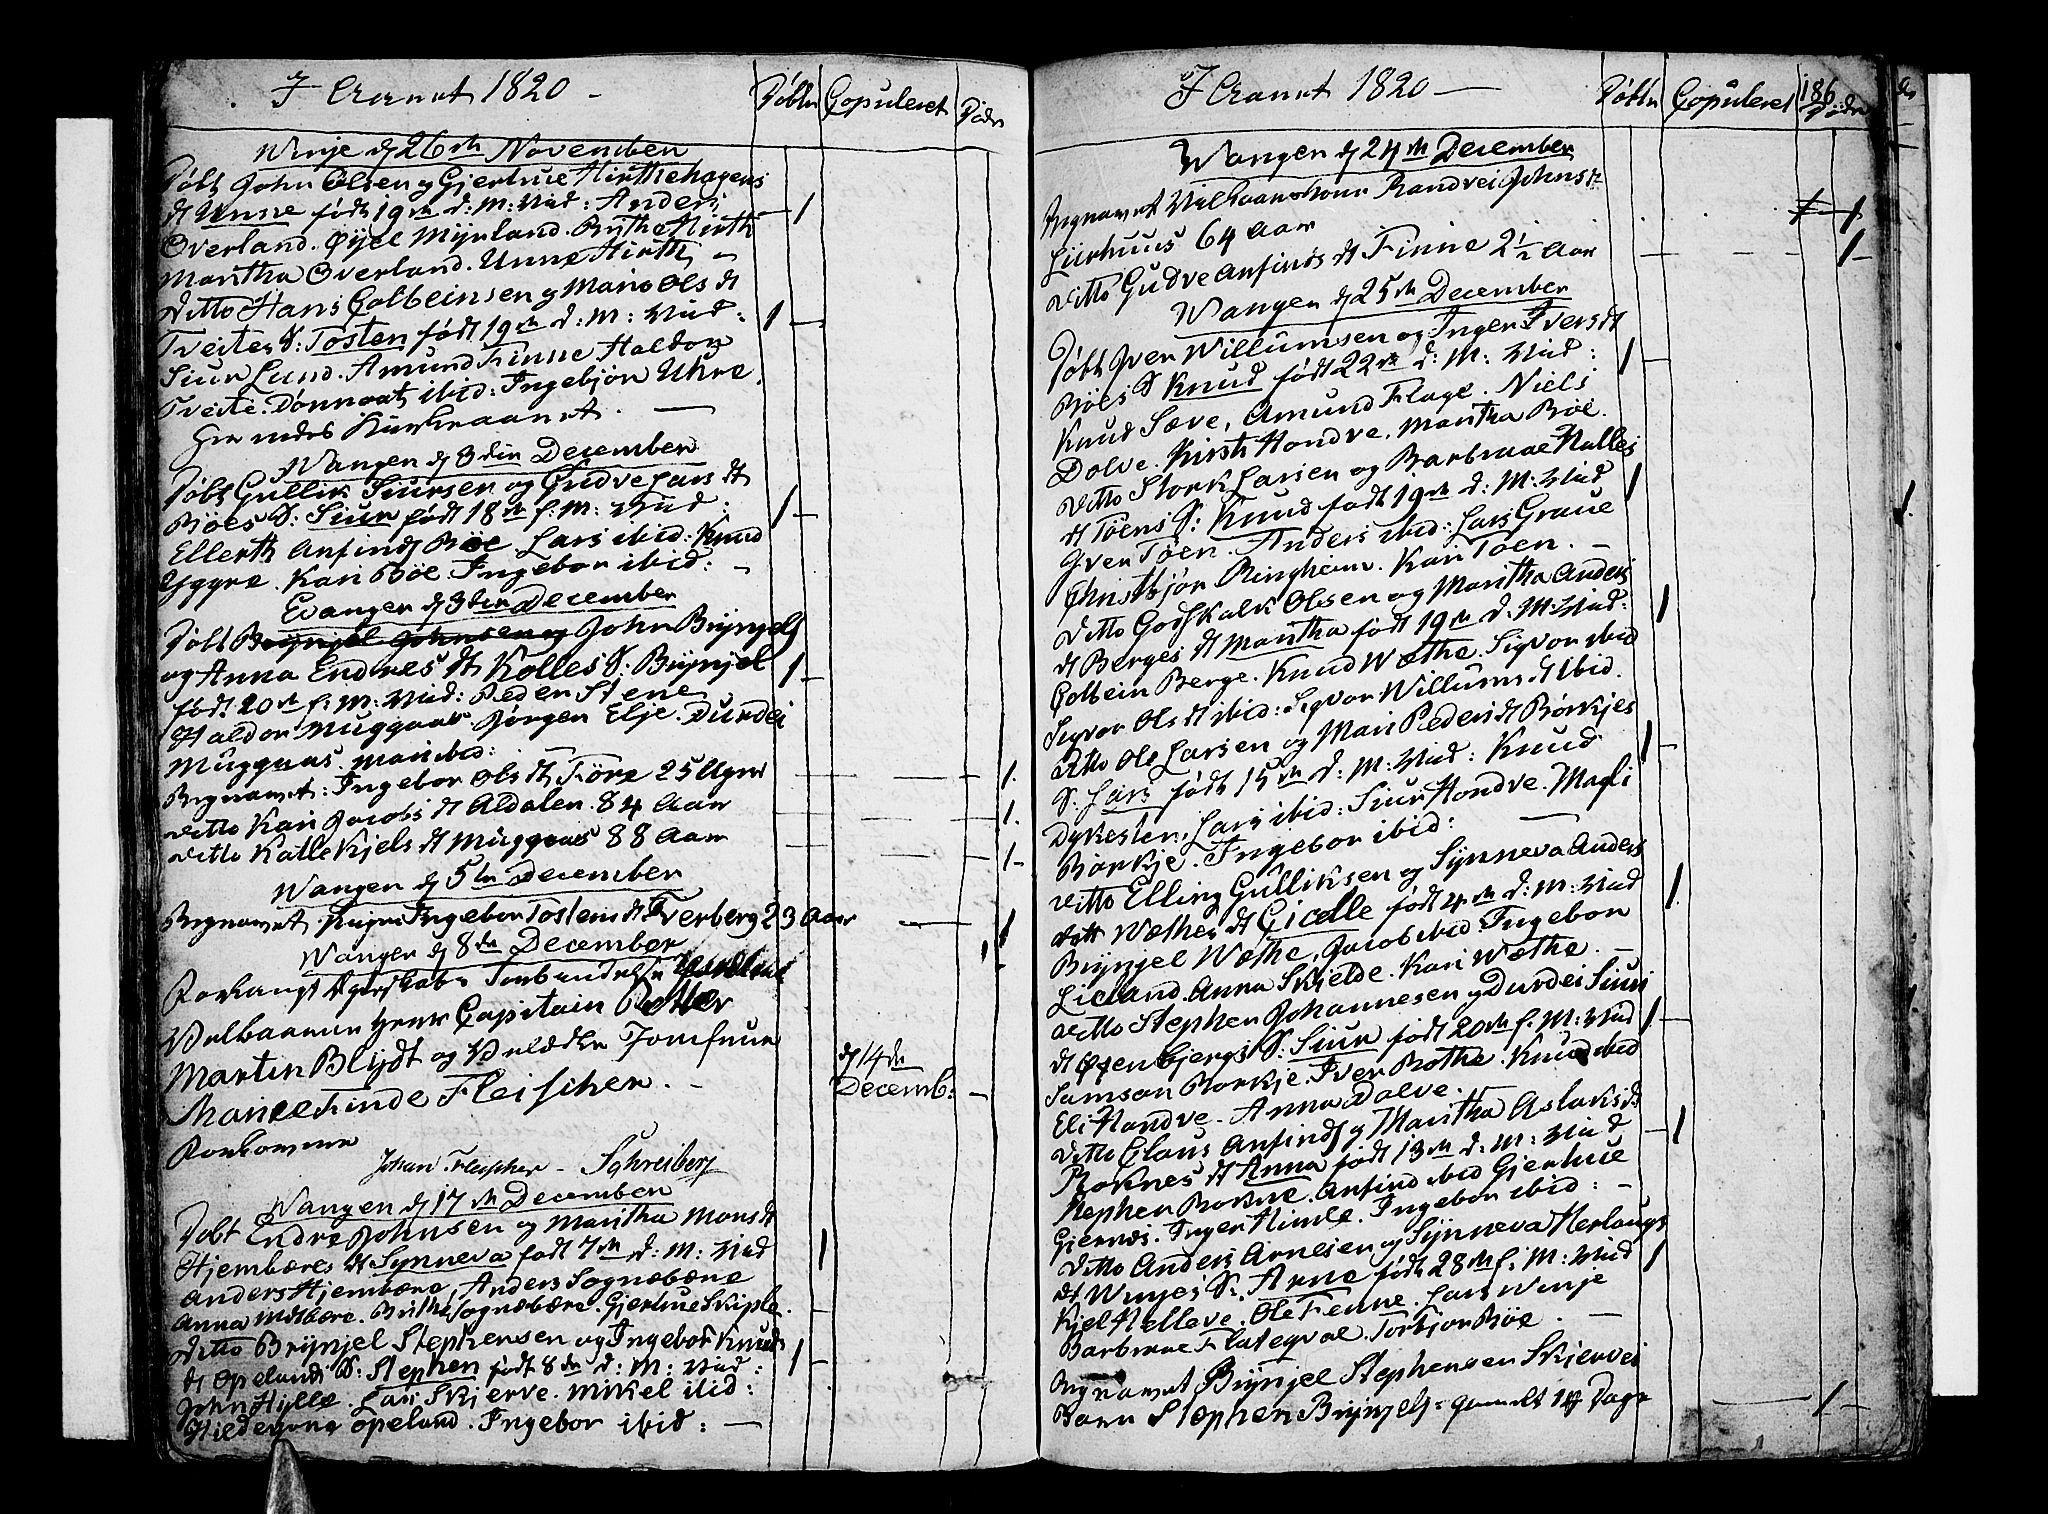 I Aaret 1820 -
Døbte Copuleret Døde
Winje d 26de November
Døbt John Olsen og Gjertrue Hirthehagens
dt Unne født 19de d: M: Vid: Anders
Overland. Eyel Myrland. Brithe Hirth
Maritha Overland. Unne Hirth -
Ditto Hans Colbeinsen og Mario Ols dt
Tveites S: Tosten født 19de d: M: Vid:
Siur Lund. Amund Finne Haldor
Tveite. Dønnaut ibid: Ingebjør Uhre.
Wangen d 3die December
Døbt Gullik Siursen og Gudve Lars dt
Bøes S: Siur født 18de f: M: Vid:
Ellerth Anfinds Bøe Lars ibid: Knud
Yggre. Kari Bøe Ingebor ibid: -
Evanger d 3die December
Døbt Brynjel Johnsen og John Brynjels
og Anna Endres dt Kolles S: Brynjel
født 20de f: M: Vid: Peder Stene
Haldor Muggaas Jørgen Elje. Durdei
Muggaas. Mari ibid:
Begravet: Ingebor Ols dt Føre 25 Uger
Ditto Kari Jacobs dt Aldalen 84 Aar
Ditto Kalle Kjels dt Muggaas 88 Aar
Wangen d 5te December
Begravet Pige Ingebor Tostens dt Tverberg 23 Aar
Wangen d 8de December
Forlangt Ægteskabs Forbindelse imellem
Velbaarne Herr Capitain Rotter
Martin Blydt og Velædle Jomfrue
d 14de
Decemb:
Fleischer. -
Forkommer
Johan Fleischer - Schreiberg
Wangen d 17de December
Døbt Endre Johnsen og Maritha Mons dt
Hjembæres dt Synneva født 7de d: M: Vid
Anders Hjembære, Anders Sognebære
Anna Midbære. Brithe Sognæbære. Gjertrue Skiple.
Ditto Brynjel Stephensen og Ingebor Knuds
dt Opelands S: Stephen født 8de d: M: Vid:
John Hylle. Lars Skjerve. Mikel ibid:
Hildegona Opeland. Ingebor ibid: -
I Aaret 1820 -
Døbte Copuleret 186 Døde
Wangen d 24de December
Begravet Randvei Johns dt
Liirhuus 64 Aar
Ditto Gudve Anfinds dt Finne 2 1/2 Aar
Wangen d 25de December
Døbt Iver Willumsen og Inger Ivers dt
Bøes S Knud født 22de d: M: Vid:
Knud Sæve, Amund Flage. Niels
Dolve. Kirsti Hondve. Maritha Bøe.
Ditto Stork Larsen og Barbraae Nielles
dt Tøens S: Knud født 19de d: M: Vid
Iver Tøen. Anders ibid: Lars Graue
Christbjør Ringheim. Kari Tøen. -
Ditto Godskalk Olsen og Maritha Anders
dt Berges dt Maritha født 19de d: M: Vid:
Colbein Berge. Knud Wæthe. Sigvor ibid
Sigvor Ols dt ibid: Sigvor Willums dt ibid.
Ditto Ole Larsen og Mari Peders dt Børkjes
S. Lars født 15de d: M: Vid: Knud
Dykesten. Lars ibid: Siur Hondve. Magli
Børkje. Ingebor ibid: -
Ditto Elling Gulliksen og Synneva Anders
datt Wæthes dt Gicelle født 4de d: M: Vid
Brynjel Wæthe, Jacob ibid Ingebor
Lieland. Anna Skjelde. Kari Wæthe. -
Ditto Stephen Johannesen og Durdei Siurs
dt S: Siur født 20de f: M: Vid
Samson Borkje. Iver Rothe. Knud ibid
Eli Handve. Anna Dolve.
Ditto Claus Anfinds og Maritha Aslaks dt
Roknes dt Anna født 13de d: M: Vid
Stephen Rokne. Anfind ibid Gjertrue
Gjernes. Inger Himle. Ingebor ibid: -
Ditto Anders Arnesen og Synneva Herlaugs
dt Winjes S: Arne født 28de f: M: Vid
Kjel Helleve. Ole Fenne. Lars Winje
Barbraae Flatequal. Torbjor Bøe. -
Begravet Brynjel Stephensen Skjerves
Barn Stephen Brynjels: Gamelt 14 Dage